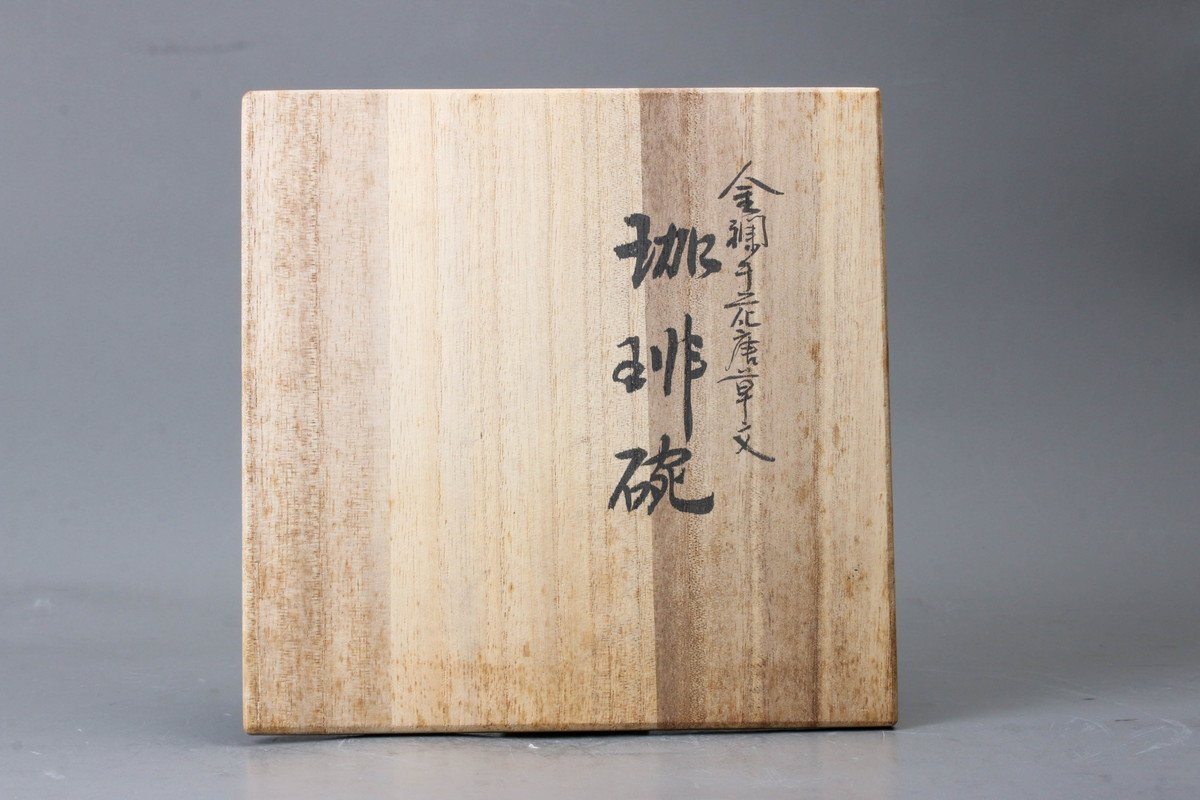 金襴手花唐草文
珈琲碗